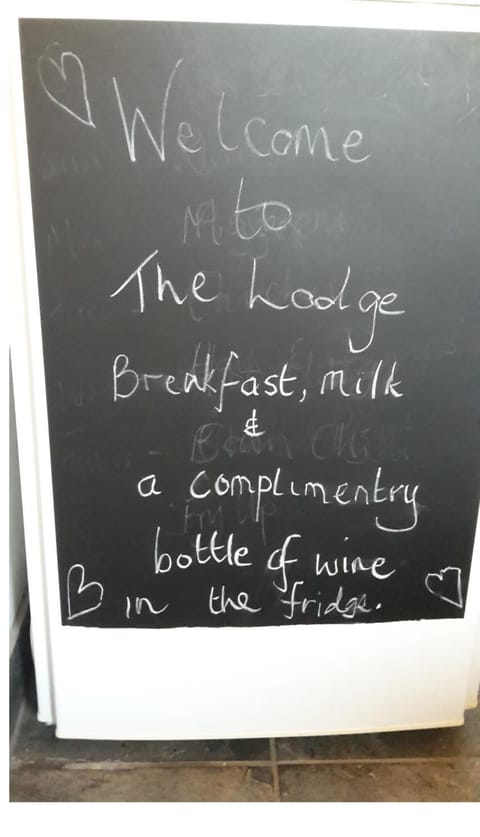 Welcome
to
The Lodge
Breakfast, milk
&
a complimentry
bottle of wine
in the fridge.